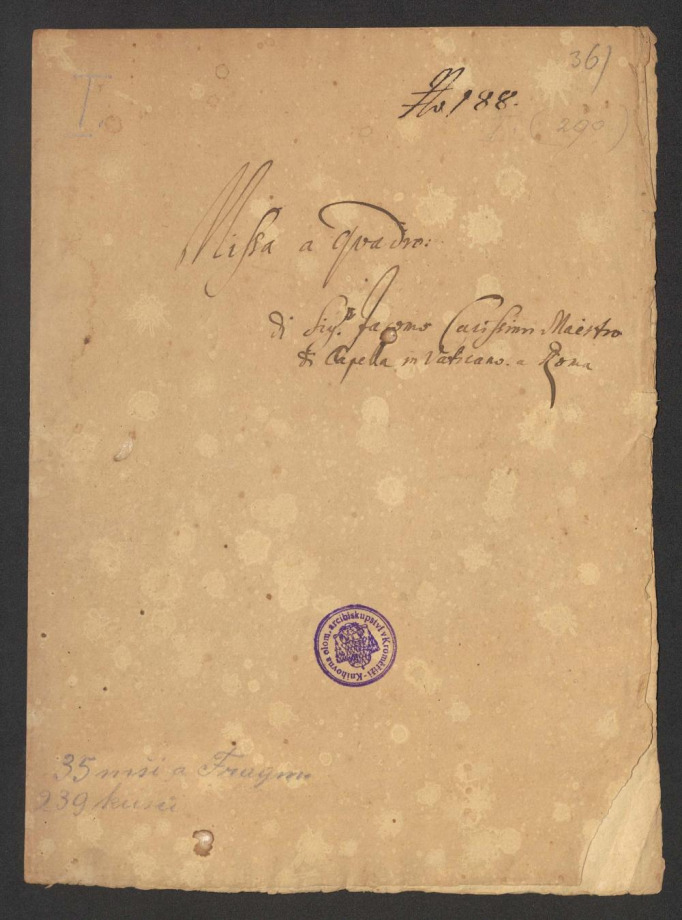 I.
36)
No. 188.
1 (290)
Missa a quadro:
di Sigr. Jacomo Carissimi Maestro
di Capella in Vaticano. a Roma
Knihovna olom. arcibiskupství v Kroměříži -
35 mší a Fragm
239 kusů